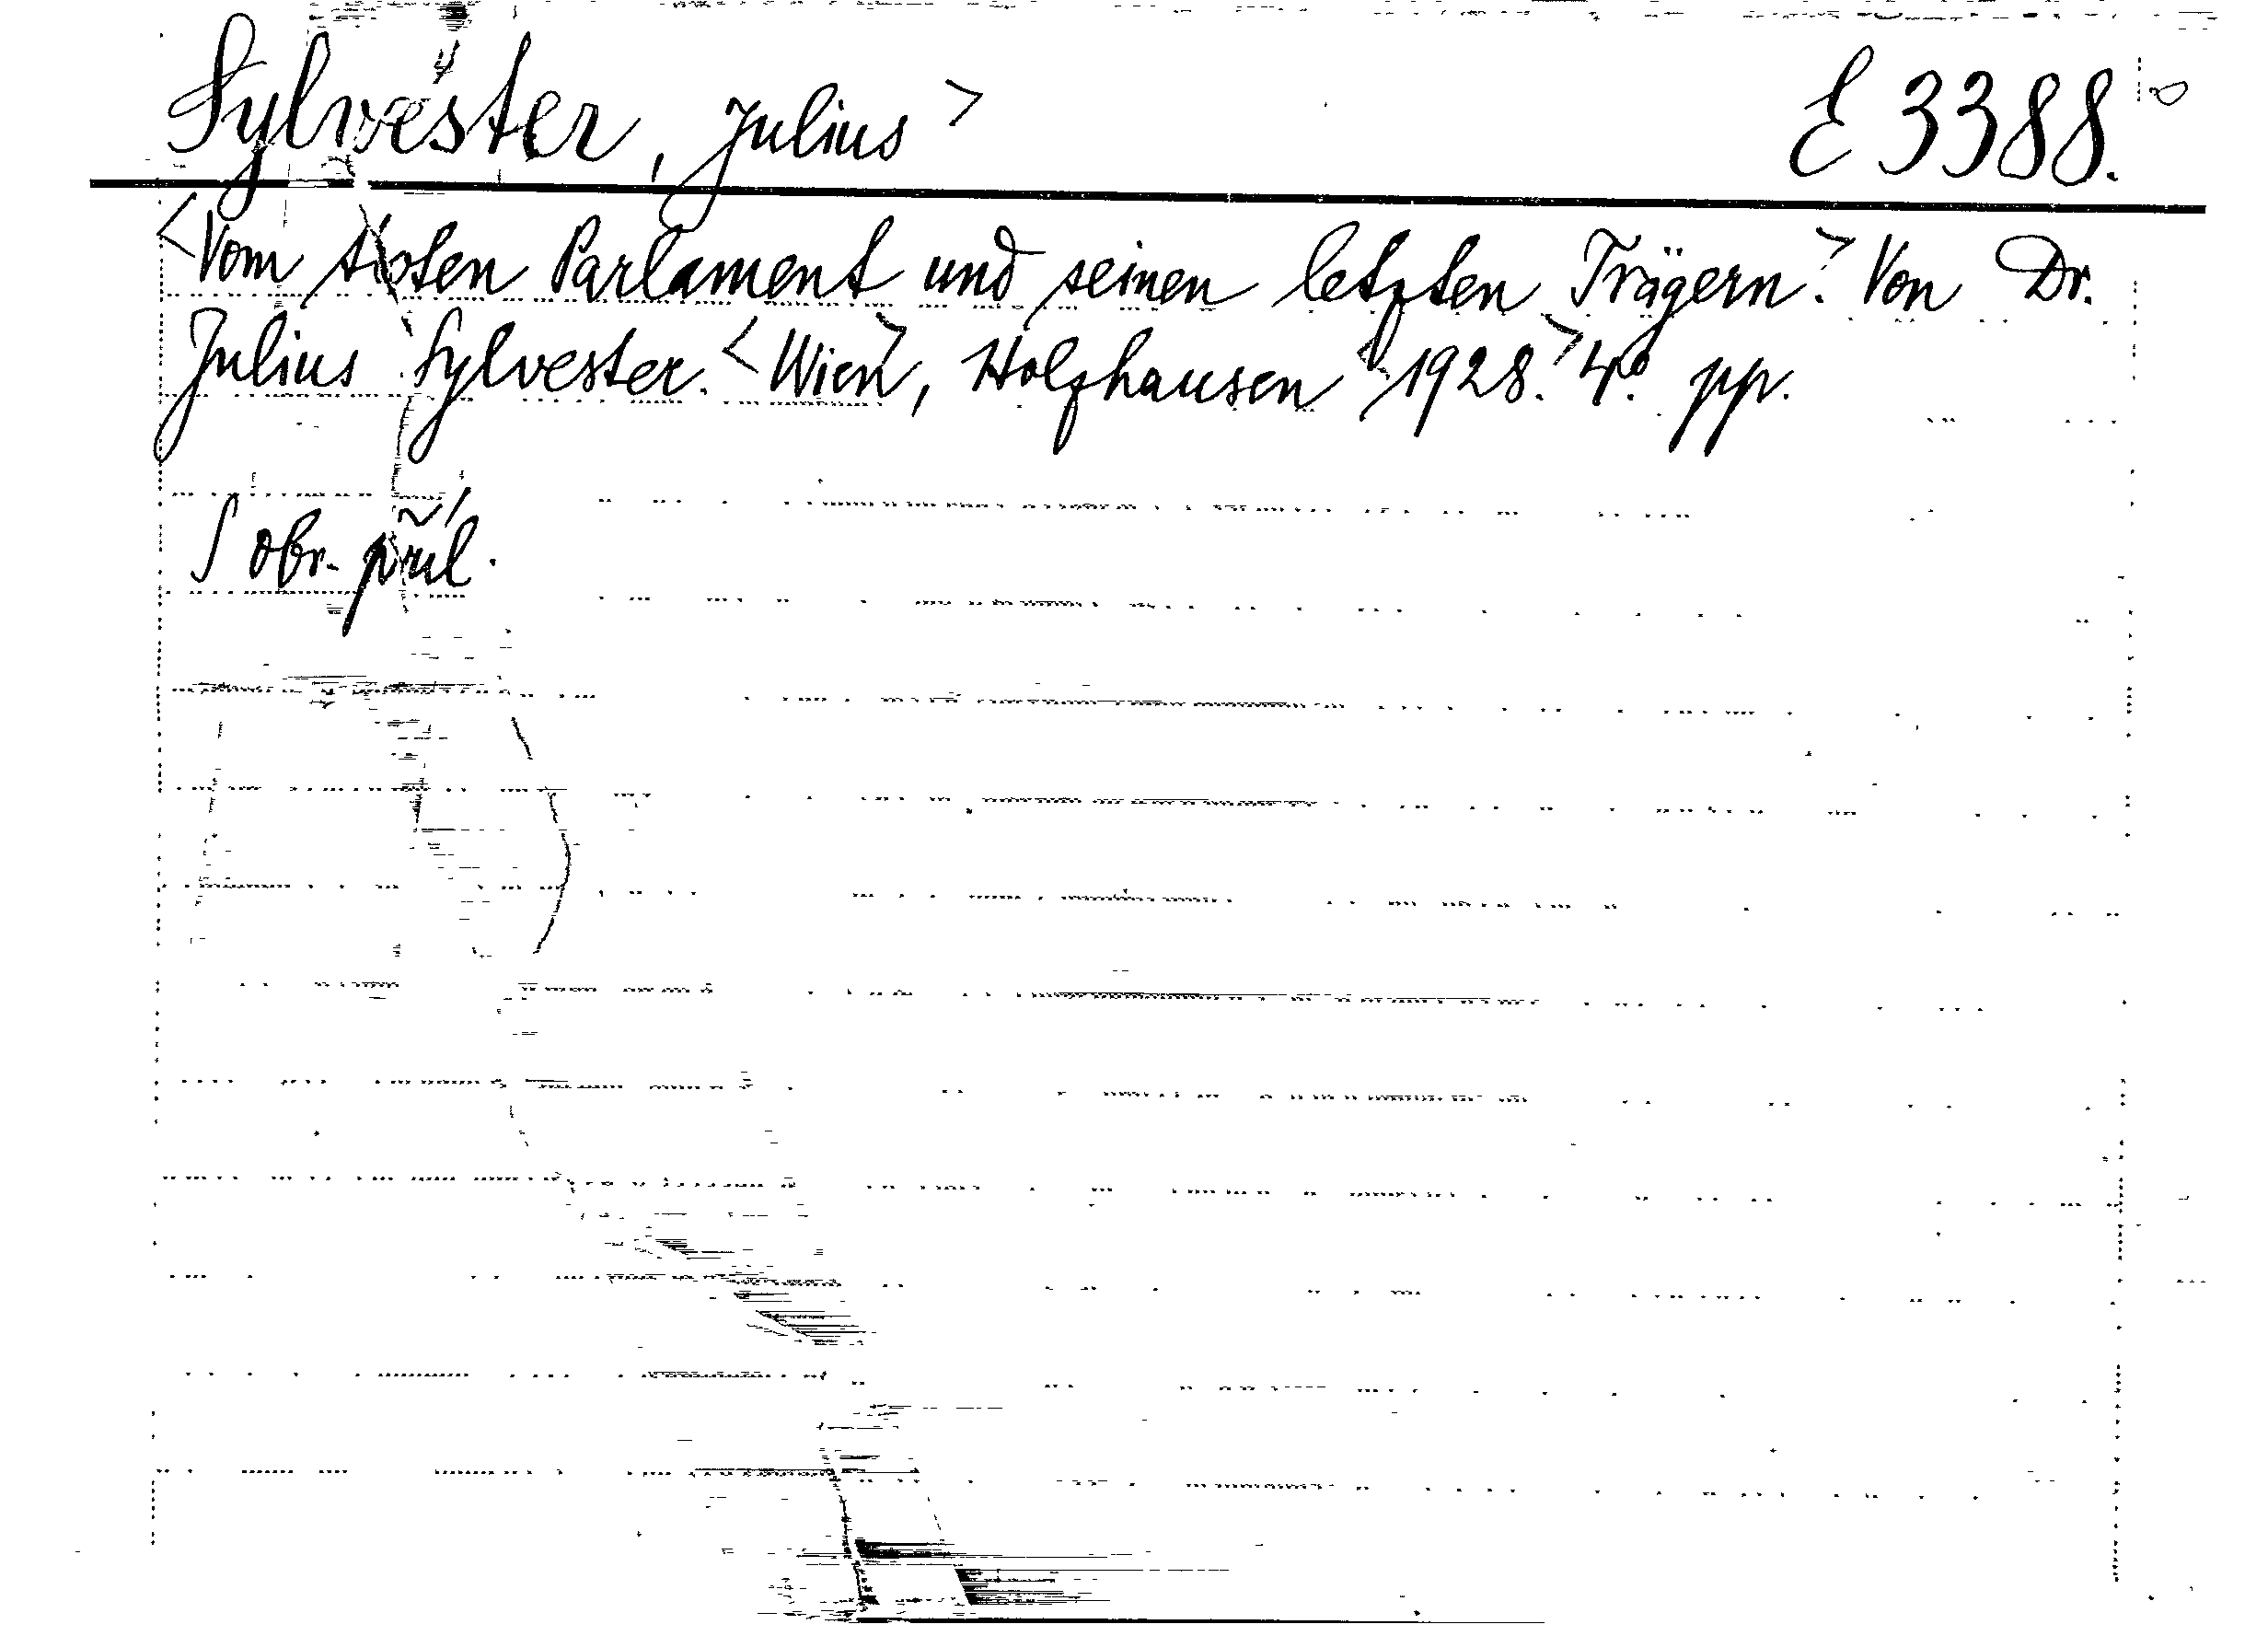 Sylvester, Julius> E 3388.
<Vom toten Parlament und seinen letzten Trägern.> Von Dr.
Julius Sylvester. <Wien>, Holzhausen <1928.> 4°. pp.
S obr. příl.